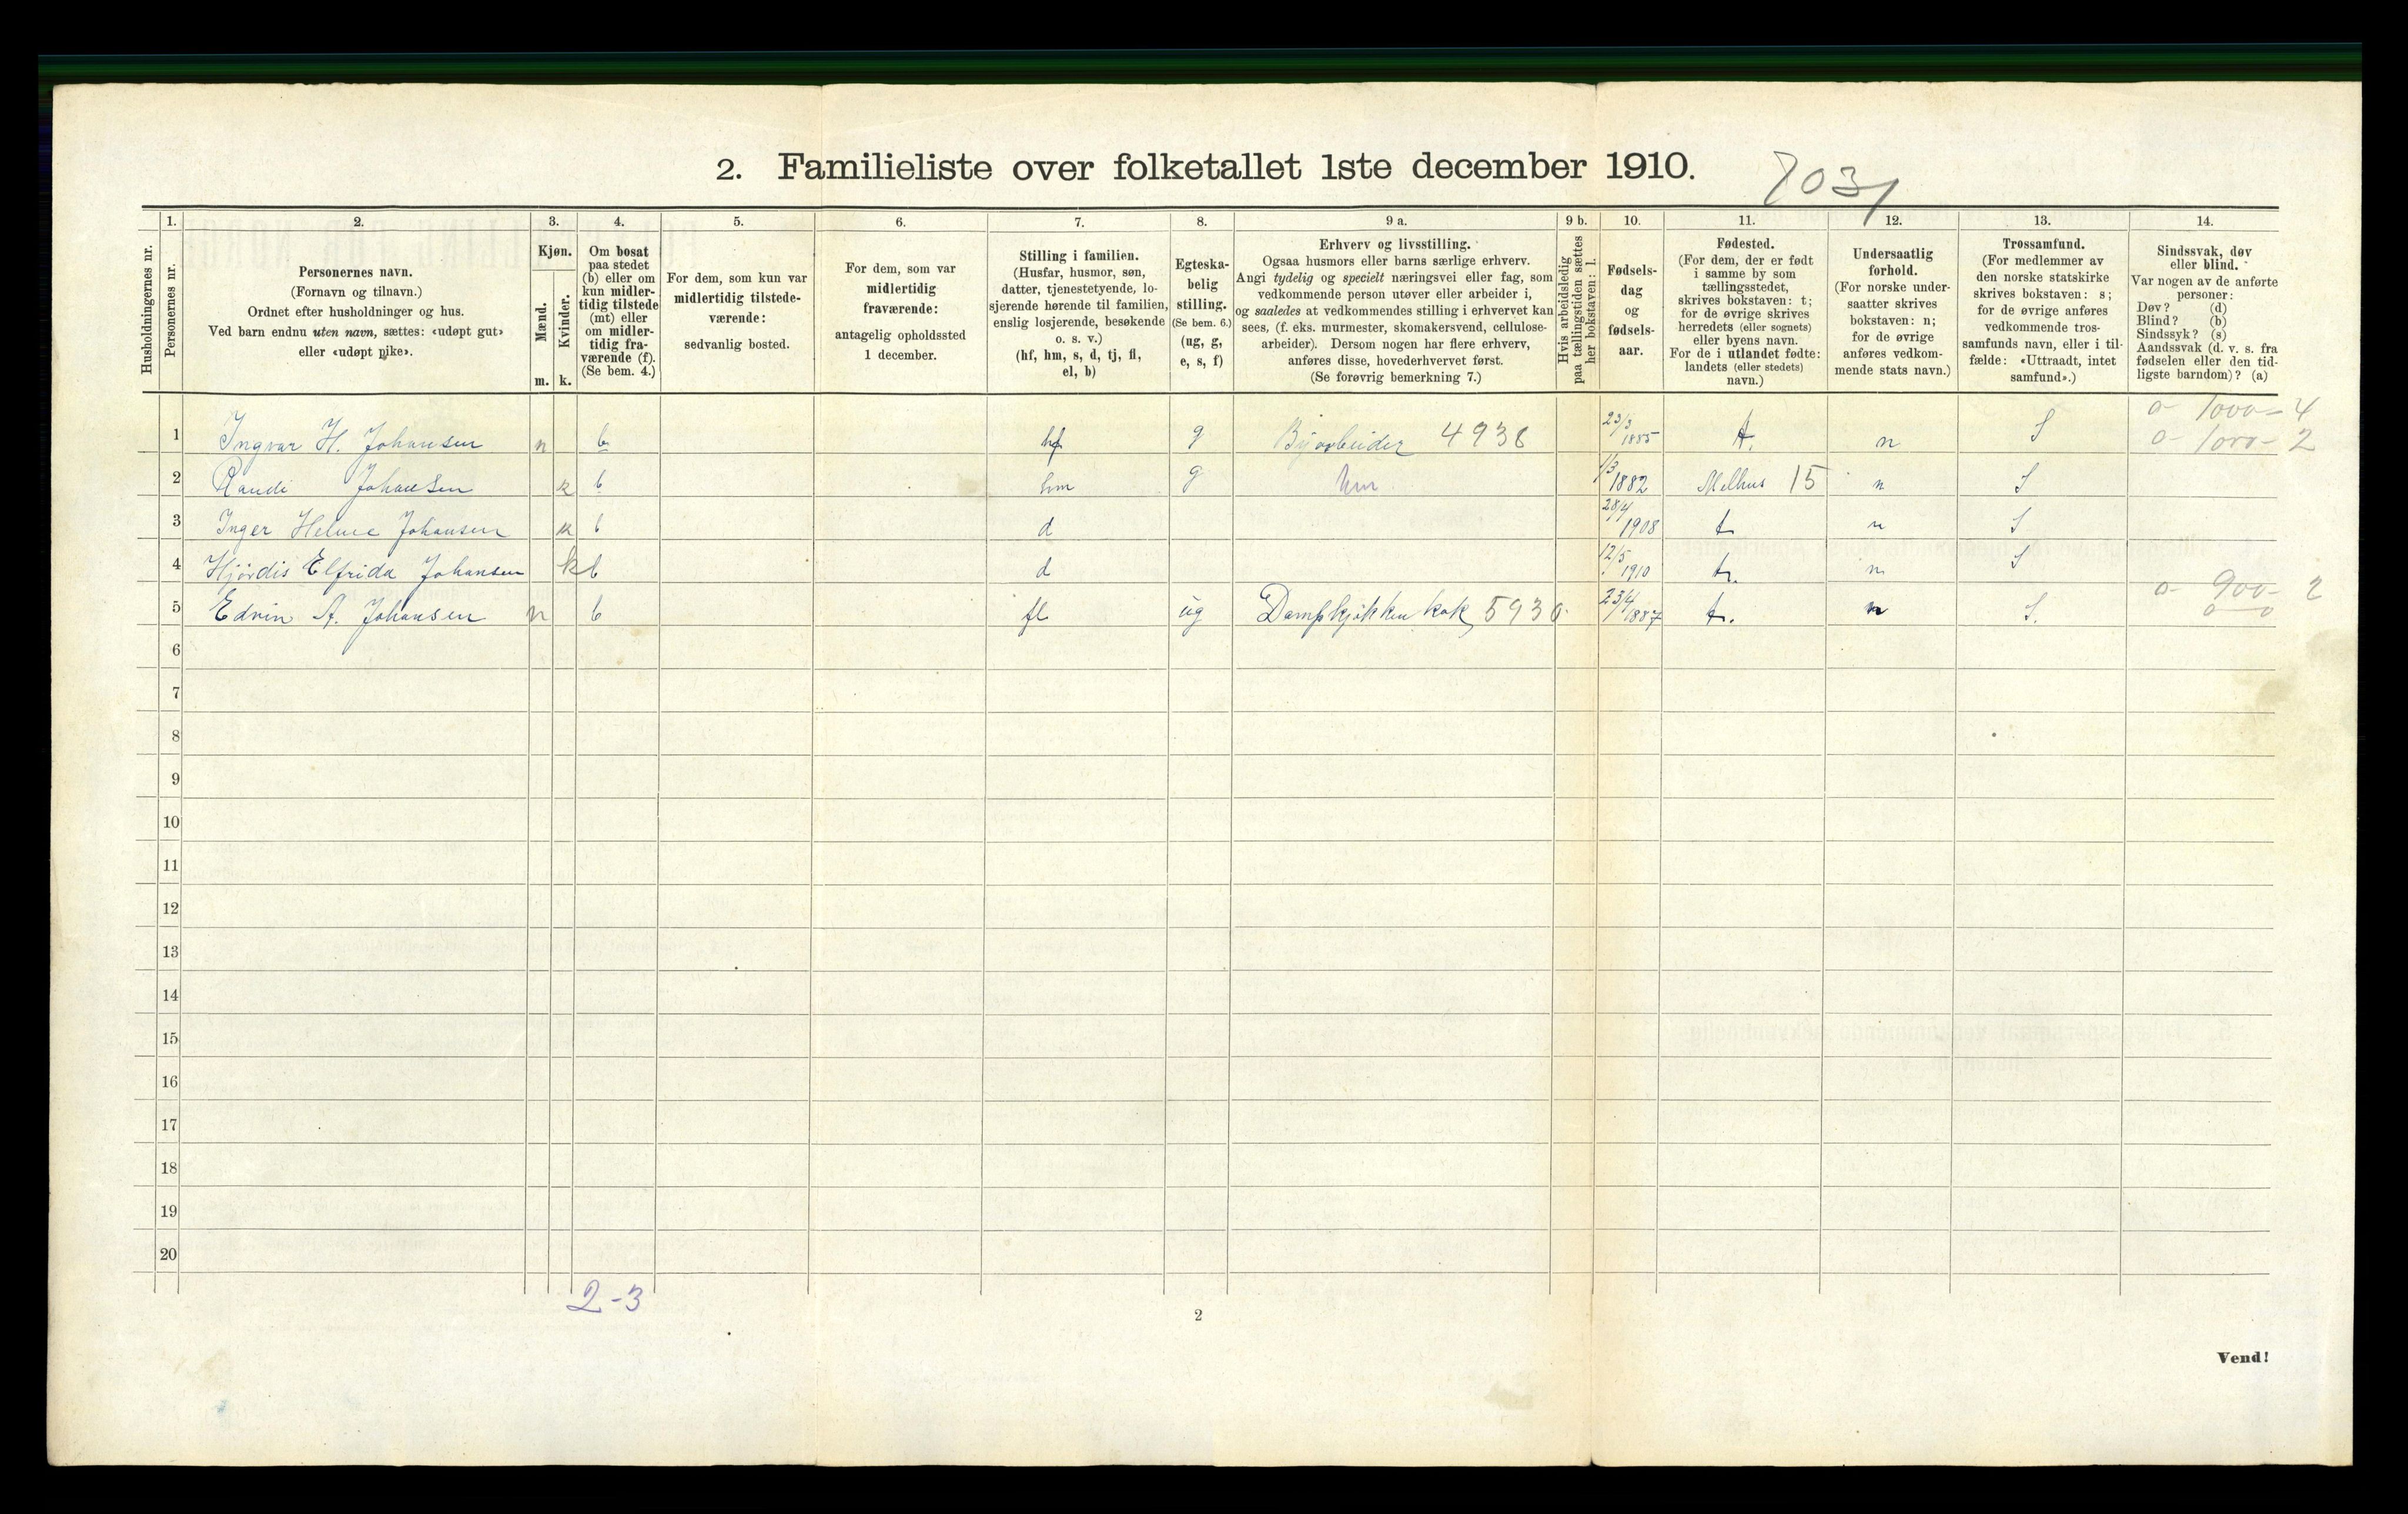 2. Familieliste over folketallet 1ste december 1910.
7031
1. 2. 3. 4. 5. 6. 7. 8. 9 a. 9 b. 10. 11. 12. 13. 14.
Husholdningernes nr.
Personernes nr.
Personernes navn.
(Fornavn og tilnavn.)
Ordnet efter husholdninger og hus.
Ved barn endnu uten navn, sættes: «udøpt gut»
eller «udøpt pike».
Kjøn.
Mænd.
m.
Kvinder.
k.
Om bosat
paa stedet
(b) eller om
kun midler-
tidig tilstede
(mt) eller
om midler-
tidig fra-
værende (f).
(Se bem. 4.)
For dem, som kun var
midlertidig tilstede-
værende:
sedvanlig bosted.
For dem, som var
midlertidig
fraværende:
antagelig opholdssted
1 december.
Stilling i familien.
(Husfar, husmor, søn,
datter, tjenestetyende, lo-
sjerende hørende til familien,
enslig losjerende, besøkende
o. s. v.)
(hf, hm, s, d, tj, fl,
el, b)
Egteska-
belig
stilling.
(Se bem. 6.)
(ug, g,
e, s, f)
Erhverv og livsstilling.
Ogsaa husmors eller barns særlige erhverv.
Angi tydelig og specielt næringsvei eller fag, som
vedkommende person utøver eller arbeider i,
og saaledes at vedkommendes stilling i erhvervet kan
sees, (f. eks. murmester, skomakersvend, cellulose-
arbeider). Dersom nogen har flere erhverv,
anføres disse, hovederhvervet først.
(Se forøvrig bemerkning 7.)
Hvis arbeidsledig
paa tællingstiden sættes
her bokstaven: l.
Fødsels-
dag
og
fødsels-
aar.
Fødested.
(For dem, der er født
i samme by som
tællingsstedet,
skrives bokstaven: t;
for de øvrige skrives
herredets (eller sognets)
eller byens navn.
For de i utlandet fødte:
landets (eller stedets)
navn.)
Undersaatlig
forhold.
(For norske under-
saatter skrives
bokstaven: n;
for de øvrige
anføres vedkom-
mende stats navn.)
Trossamfund.
(For medlemmer av
den norske statskirke
skrives bokstaven: s;
for de øvrige anføres
vedkommende tros-
samfunds navn, eller i til-
fælde: «Uttraadt, intet
samfund».)
Sindssvak, døv
eller blind.
Var nogen av de anførte
personer:
Døv? (d)
Blind? (b)
Sindssyk? (s)
Aandssvak (d. v. s. fra
fødselen eller den tid-
ligste barndom)? (a)
0- 1000-4
1 Ingvar H. Johansen m b hf g Byarbeider 4938 23/3 1885 t. n S 0- 1000-2
2 Randi Johansen k b hm g hm 1/3 1882 Melhus 15 n S
3 Inger Helme Johansen k b d 28/4 1908 t n S
4 Hjördis Elfrida Johansen k b d 12/5 1910 t. n S
0- 900- 2
5 Edvin A. Johansen m b fl ug Dampkjøkken kok 5930 23/4 1887 t. n S. 0 0
6
7
8
9
10
11
12
13
14
15
16
17
18
19
20
2-3
2
Vend!